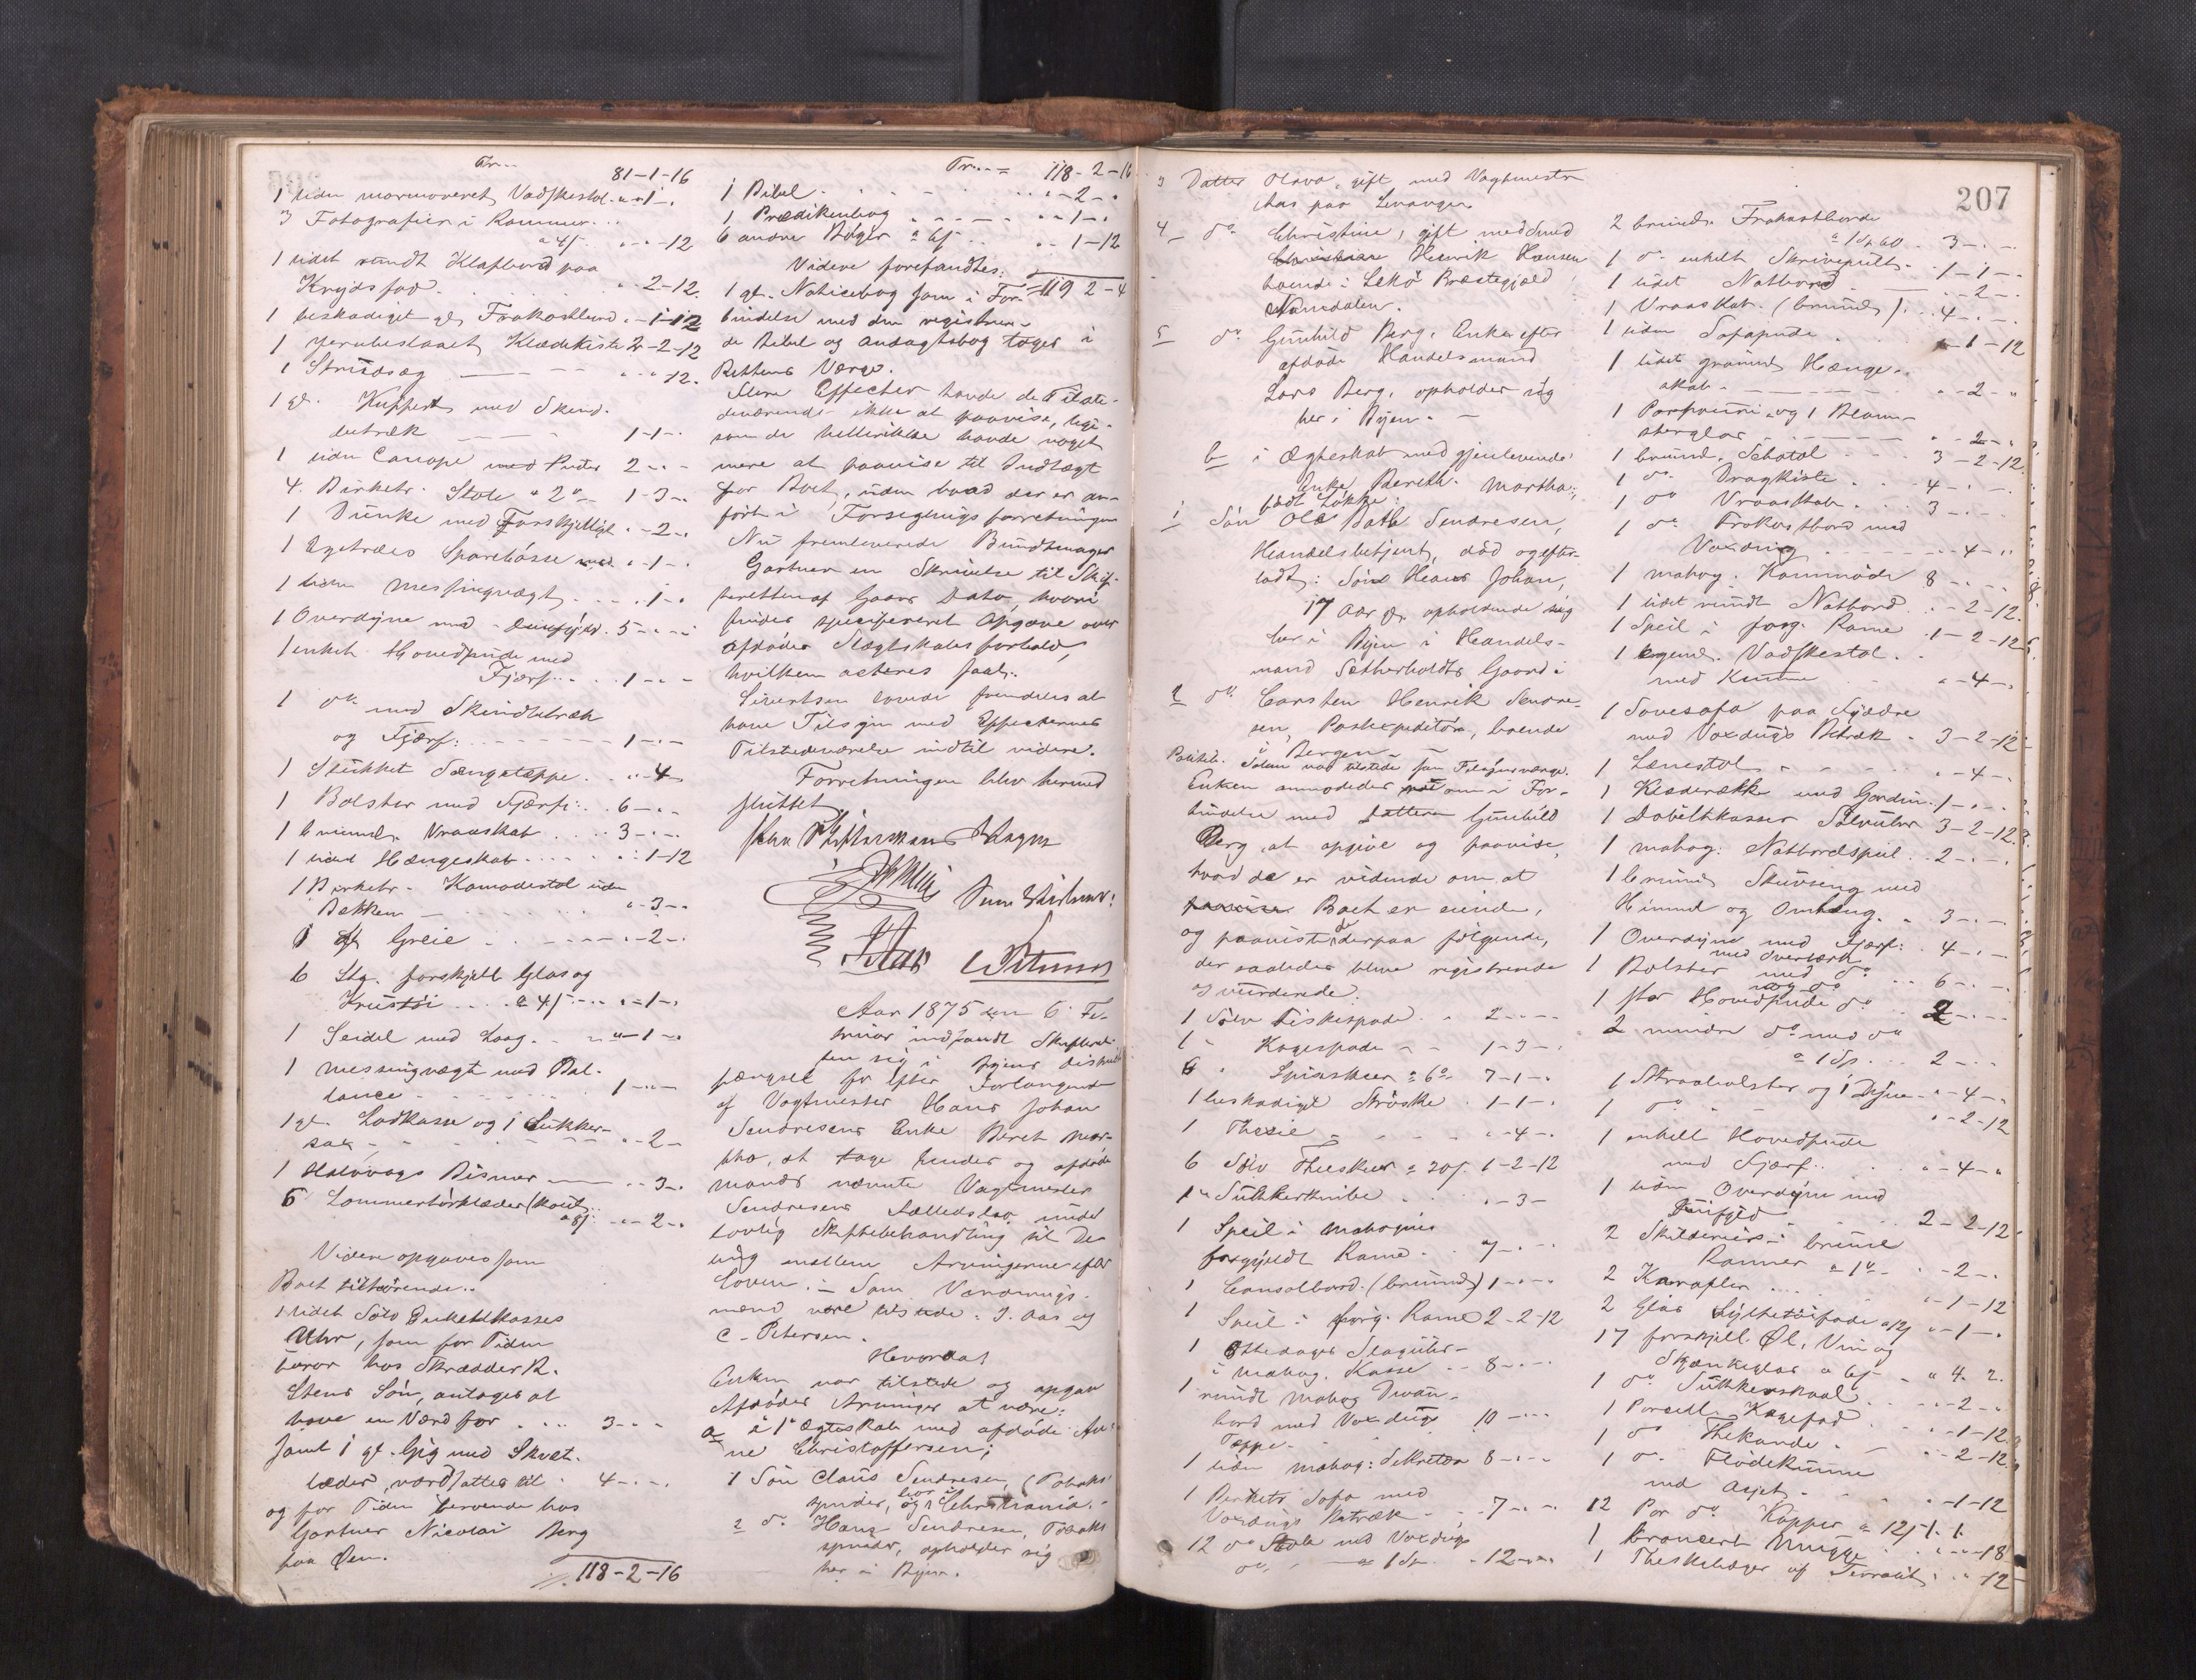 Tr... 81-1-16
1 liden marmoreret Vadskestol - " 1 - "
3 Fotografier i Rammer ...
a 4ſ " - " - 12
1 lidet rundt Klapbord paa
Krydsfod " - 2-12.
1 beskadiget gl. Frokostbord " - 1-12
1 jernbeslaaet Klædekiste 2-2-12
1 Strudsæg " - " 12.
1 gl. Kuffert med Skind-
betræk 1-1-"
1 liden Canape med Puder 2 - " -
4 Birketr. Stole a 2 1-3-"
1 Dunke med Forskjelligt " - 2 - "
1 Egetræes Sparebösse " - 1 - "
1 liden Messingvægt " 1 - "
1 Overdyne med 5 - " - "
1 enkelt Hovedpude med
Fjær 1 - " -
1 do med Skindbetræk
og Fjær: 1 - " -
1 Stukket Sængeteppe " - 4
1 Bolster med Fjær: 6 - " -
1 brunm. Vraaskab 3 - " -
1 lidet Hængeskab " - 1-12
1 Birketr. Komodestol uden
Bekken " - 3 - "
Greie " - 2 - "
6 Stk. forskjell Glas og
Krustöi a 4ſ " - 1 - "
1 Seidel med Laag " - 1 - "
1 Messingvægt med Bal-
lance 1 - " -
1 gl. Ladkasse og 1 Sukker-
sax " - 2 -
1 Halvvogs Bismer " - 3 - "
6 Lommetörklæder
a 8ſ " - 2 - "
Videre opgaves som
Boet tilhørende..
1 lidet Sölv Dukeltkasses
Uhr, som for Tiden
beror hos Skrædder R.
Stens Sön, antages at
have en Værd for 3 - " -
samt 1 gl. Gig med Skvet-
læder, værdsattes til 4 - " -
og for Tiden beroende hos
Gartner Nicolai Berg
paa Øen.
118-2-16
Tr... 118-2-16
1 Bibel " - 2 - "
1 Prædikenbog " - 1 - "
6 andre Böger a 6ſ " - 1-12
Videre forefandtes: 119 2-4
1 gl. Noticebog som i For-
bindelse med den registrere-
de Bibel og Andagtsbog toges i
Rettens Værge.
Flere Effecter havde de Tilste-
deværende ikke at paavise, lige-
som de hellerikke havde noget
mere at paavise til Indtægt
for Boet, uden hvad der er an-
fört i Forseglingsforretningen
Nu fremleverede Bundtmager
Gartner en Skrivelse til Skif-
teretten af Gaars Dato, hvori
findes specificeret Opgave over
afdödes Slægtskabsforhold,
hvilken acteres saal.
Sivertsen lovede fremdeles at
have Tilsyn med Effecternes
Tilstedeværelse indtil videre.
Forretningen blev hermed
sluttet
Aar 1875 den 6 Fe-
bruar indfandt Skifteret-
ten sig i Byens Distrikt-
fængsel for efter Forlangende
af Vagtmester Hans Johan
Sendresens Enke Beret Mar-
tha, at tage hendes og afdøde
Mands nævnte Vagtmester
Sendresens Fællesbo under
lovlig Skiftebehandling til De-
ling mellem Arvingerne efter
Loven. - Som Vurderings-
mænd vare tilstede: I. Aas og
C. Petersen.
Hvorda!
Enken var tilstede og opgav
Afdödes Arvinger at være:
a i 1e Ægteskab med afdöde An-
ne Christoffersen;
1 Sön Claus Sendresen, (Tobaks-
spinder, bor i Christiania.
2 do Hans Sendresen, Tobaks
spinder, opholder sig
her i Byen.
207
3 Datter Olava, gift med Vagtmester
Aas paa Levanger.
4 do Christine, gift med Smed
Henrik Hansen
boende i Lekö Præstegjæld
Namdalen.
5 do Gunhild Berg, Enke efter
afdöde Handelsmand
Lars Berg, opholder sig
her i Byen. -
b i Ægteskab med gjenlevende
Enke Bereth Martha,
född Lökke:
1 Sön Ole Sendresen,
Handelsbetjent, död og efter-
ladt: Sön Hans Johan,
17 Aar gl. opholdende sig
her i Byen i Handels-
mand Sætherholdts Gaard i
2 do Carsten Henrik Sendre-
sen, Postexpeditör, boende
i Bergen.
var tilstede som Tilsynsværge.
Enken anmodedes om i For-
bindelse med Datteren Gunhild
Berg, at opgive og paavise,
hvad de er vidende om, at
Boet er eiende,
og paaviste de derpaa fölgende,
der saaledes bleve registrerede
og vurderede.
1 Sölv Fiskespade " 2 - " -
1 " Kagespade - - 1-3-"
6 " Spiseskeer a 6 7-1-"
1 beskadiget Ströske 1-1-"
1 Thesie " - 4 - "
6 Sölv Theskeer a 20ſ 1-2-12
1 " Sukkerknibe " - 3 -
1 Speil i Mahognies
forgyldt Rame 7 - " -
1 Consolbord (brunm) 1 - " -
1 Speil i forg. Rame 2-2-12
1 Ottedages Slaguhr
i mahog. Kasse 8 - " -
1 rundt mahog Divan-
bord med Voxdugs 10 - " -
Tæppe.
1 liden mahog: Sekretær 8 - " -
1 Birketr Sofa med
Voxdugs Betræk 7 - " -
12 do Stole med Voxdugs
do, a 1 Sp. 12 - " -
2 brunm. Frokostborde
a 1 Sp 60 3 - " -
1 do enkelt Skrivepult 1-1-"
1 lidet Natbord - 2 - "
1 Vraaskab (brunm) 4 - " -
1 liden Sofapude " - 1-12
1 lidet grønm. Hænge-
skab " - 2 - "
1 og 1 Blom-
sterglas " - 2 - "
1 brunm. Schatol 3-2-12
1 do Dragkiste 4 - " -
1 do Vraaskab 3 - " -
1 do Frokostbord med
Voxdug " - 4 - "
1 mahog. Kommode 8 - " -
1 lidet rundt Natbord " - 2-12.
1 Speil i forg. Rame 1-2-12
1 Vadskestol
med Kumme " - 4 - "
1 Sovesofa paa Fjædre
med Voxdugs Betræk 3-2-12
1 Lænestol " - 4 - "
1 Klæderække med Gardin 1 - " -
1 Dobeltkasses Sölvuhr 3-2-12
1 mahog: Natbordspeil 2 - " -
1 brunm Skuvseng med
Himmel og Omhæng 3 - " -
1 Overdyne med Fjær: 4 - " -
med Overtræk
1 Bolster med do 6 - " -
1 stor Hovedpude do 2 - " -
2 mindre do med do
a 1 Sp. 2 - " -
1 Straabolster og 1 Dyne " - 4 - "
1 do " - 2-12
1 enkelt Hovedpude
med Fjær " - 4 - "
1 liden Overdyne med
2-2-12
2 Skilderier i brune
Rammer a 1 " - 2 - "
2 Karafler " - 1-12
2 Glas Syltetöifade a 12ſ " - 1 - "
17 forskjell. Øl, Vin og
Skjænkeglas a 6ſ " 4. 2.
1 do Sukkerskaal " - 2 - "
1 Porcell. Kagefad " - 1-12
1 do Thekande " - 2-12
1 do Flödekumme
med Asjet " - 1-12
12 Par do Kopper a 12ſ 1. 1.
1 broncert Mugge " - " - 18
1 Theskebæger af " - 12